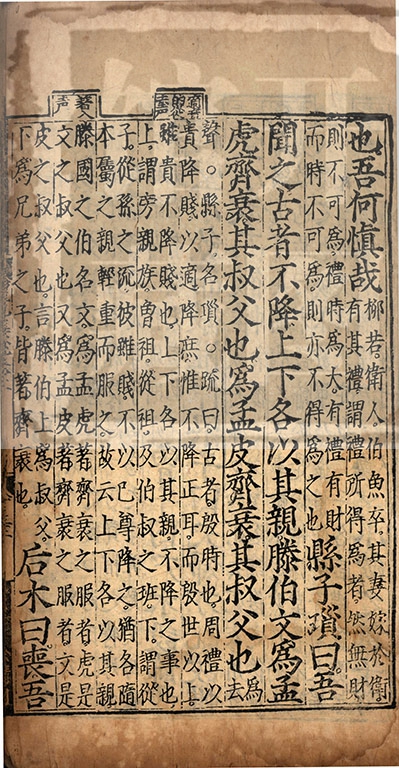 也吾何慎哉柳若。衛人。伯魚卒。其妻嫁於衛
有其禮謂禮所得為者然無財
則不可為。禮時為大有禮有財
而時不可為。則亦不得為之。縣子瑣曰。吾
聞之古者不降上下各以其親滕伯文為孟
虎齊衰其叔父也為孟皮齊衰其叔父也為去
聲。縣子名瑣。疏曰。古者。殷時也。周禮以
貴降賤以適降庶惟不降正耳。而殷世以上
雖貴不降賤也。上下各以其親。不降之事也
上。謂旁親族曾祖從祖及伯叔之班下。謂從
子。從孫之流彼雖賤不以已尊降之。猶各隨
本屬之親輕重而服之。故云上下各以其親
滕國之伯名文。為孟虎著齊衰之服者虎是
文之叔父也。又為孟皮著齊衰之服者。文是
皮之叔父也。言滕伯上為叔父。
下為兄弟之子。皆著齊衰也。后木曰。喪吾
著入
声